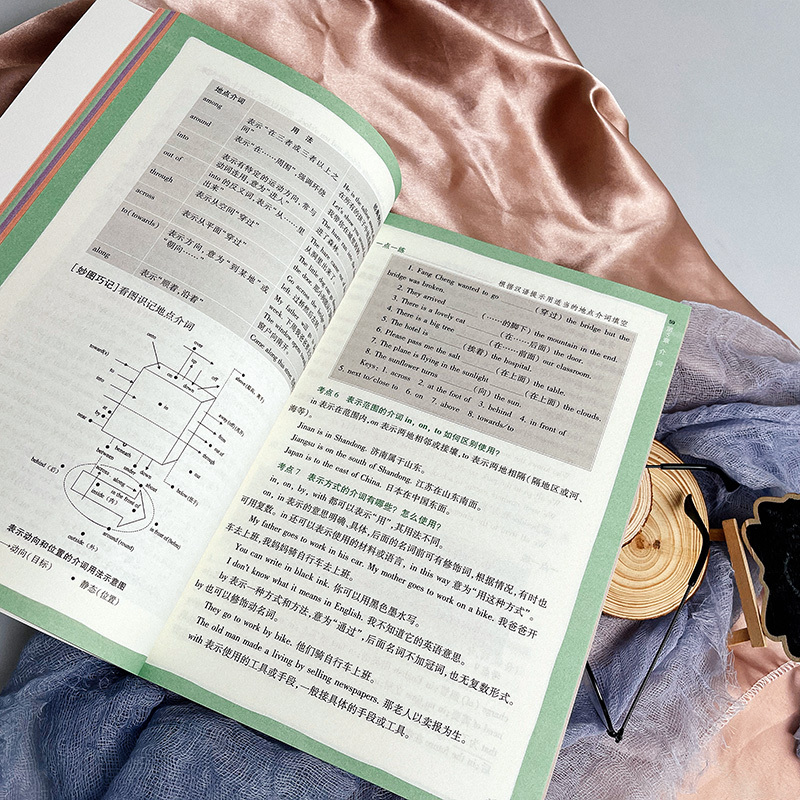 地点介词 用法
among 表示“在三者或三者以上之间”
around 表示“在……周围”强调环绕
into 表示有特定的运动方向,常与动词连用,意为“进入”
out of into 的反义词,表示“从……里出来”
through 表示从空间“穿过”
across 表示从平面“穿过”
to(towards) 表示方向,意为“到某地”或“朝向……”
along 表示“顺着,沿着”
[妙图巧记]看图识记地点介词
over
on
down
off
in
near
by
from
out of
through
beneath
under
down
about
behind (后)
along
inside (内)
in the front of
around (round)
outside (外)
表示动向和位置的介词用法示意图
→动向(目标)
• 静态(位置)
一点一练
根据汉语提示用适当的地点介词填空
1. Fang Cheng wanted to go ______ (穿过) the bridge but the
bridge was broken.
2. They arrived ______ (……的脚下) the mountain in the end.
3. There is a lovely cat ______ (在……后面) the door.
4. There is a big tree ______ (在……前面) our classroom.
5. The hotel is ______ (挨着) the hospital.
6. Please pass me the salt ______ (在上面) the table.
7. The plane is flying in the sunlight ______ (在上面) the clouds.
8. The sunflower turns ______ (向) the sun.
Keys: 1. across 2. at the foot of 3. behind 4. in front of
5. next to/close to 6. on 7. above 8. towards/to
考点6 表示范围的介词 in, on, to 如何区别使用?
in 表示在范围内, on 表示两地相邻或接壤, to 表示两地相隔(隔地区或河、
海等)。
Jinan is in Shandong. 济南属于山东。
Jiangsu is on the south of Shandong. 江苏在山东南面。
Japan is to the east of China. 日本在中国东面。
考点7 表示方式的介词有哪些?怎么使用?
in, on, by, with 都可以表示“用”,其用法不同。
on, in 表示的意思明确、具体,后面的名词前可有修饰词,根据情况,有时也
可用复数。in 还可以表示使用的材料或语言, in this way 意为“用这种方式”。
My father goes to work in his car. My mother goes to work on a bike. 我爸爸开
车去上班,我妈妈骑自行车去上班。
You can write in black ink. 你可以用黑色墨水写。
I don't know what it means in English. 我不知道它的英语意思。
by 表示一种方式和方法,意为“通过”,后面名词不加冠词,也无复数形式。
by 也可以修饰动名词。
They go to work by bike. 他们骑自行车上班。
The old man made a living by selling newspapers. 那老人以卖报为生。
with 表示使用的工具或手段,一般接具体的手段或工具。